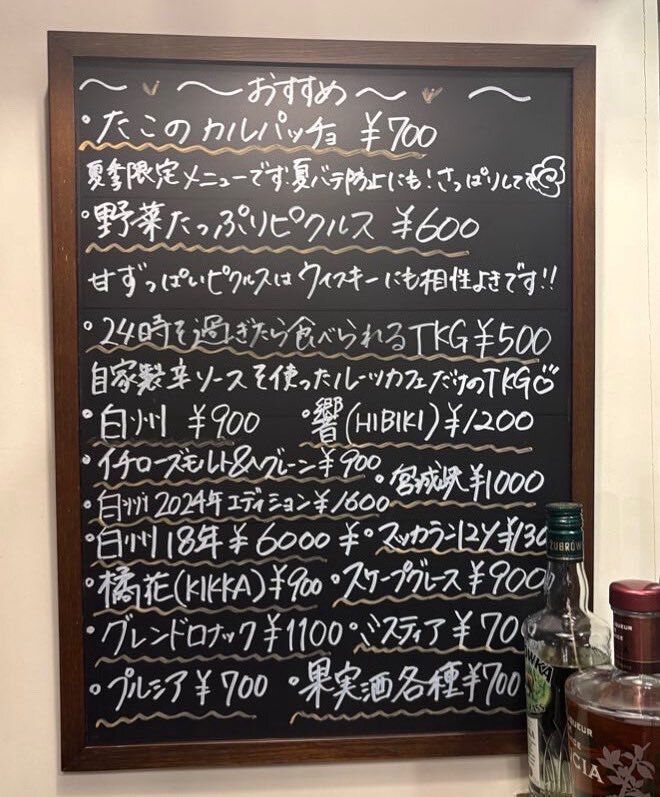 おすすめ
・たこのカルパッチョ ¥700
夏季限定メニューです!夏バテ防止にも!さっぱりして
・野菜たっぷりピクルス ¥600
甘ずっぱいピクルスはウィスキーにも相性よきです!!
・24時を過ぎたら食べられるTKG¥500
自家製辛ソースを使ったルーツカフェだけのTKG
・白州 ¥900 ・響(HIBIKI)¥1200
・イチローズモルト&グレーン¥900 ・宮城峡¥1000
・白州2024年エディション¥1600
・白州18年¥6000 ・スッカラン12Y ¥130
・橘花(KIKKA)¥900 ・スケープグレース¥900
・グレンドロナック¥1100 ・ミスティア¥70
・プルシア¥700 ・果実酒各種¥700
CIA